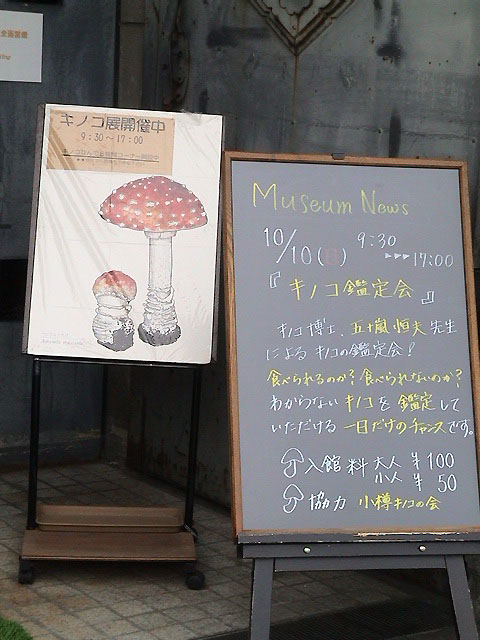 キノコ展開催中
9:30～17:00
Museum News
10/10(日) 9:30
▸▸▸17:00
『キノコ鑑定会』
キノコ博士、五十嵐恒夫先生
による キノコの鑑定会!
食べられるのか?食べられないのか?
わからない キノコを 鑑定して
いただける 一日だけのチャンスです。
入館料 大人 ¥100
小人 ¥50
協力 小樽キノコの会